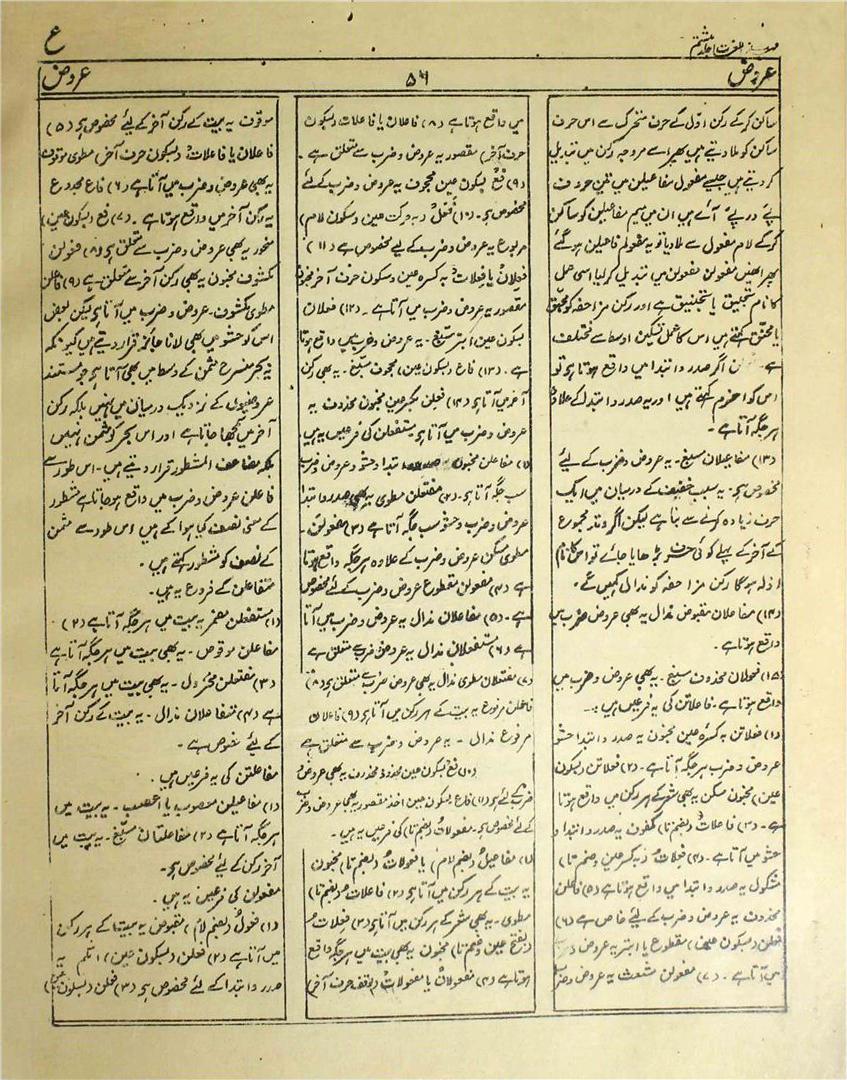 مہذب اللغات جلد ہشتم
ع
عروض
۵۶
عروض
ساکن کرکے رکن اول کے حرف متحرک سے اس حرف
ساکن کو ملا دیتے ہیں پھر اسے مروجہ رکن میں تبدیل
کر دیتے ہیں جیسے مفعول مفاعیلن میں تین حروف
پے در پے آئے ہیں ان میں میم مفاعیلن کو ساکن
کرکے لام مفعول سے ملا دیا تو یہ مفعولم فاعیلن ہوگئے
پھر انھیں مفعولن مفعولن میں تبدیل کر لیا اسی عمل
کا نام تخنیق یا تخنیق ہے اور رکن مزاحفہ کو مخنق
یا محنق کہتے ہیں اس کا عمل تسکین اوسط سے مختلف
ہے ن اگر صدر و ابتدا میں واقع ہوتا ہو تو
اس کو اخرم کہتے ہیں اور یہ صدر و ابتدا کے علاوہ
ہر جگہ آتا ہے۔
(۱۳) مفاعیلان مسبغ۔ یہ عروض و ضرب کے لئے
مخصوص ہے۔ یہ سبب خفیف کے درمیان میں ایک
حرف زیادہ کرنے سے بنا ہے لیکن اگر وتد مجموع
کے آخر کے پہلے کوئی حرف بڑھایا جائے تو اس کا نام
اذالہ ہوگا رکن مزاحفہ کو مذال کہیں گے۔
(۱۴) مفاعلان مقبوض مذال یہ بھی عروض و ضرب میں
واقع ہوتا ہے۔
(۱۵) فعولان محذوف مسبغ۔ یہ بھی عروض و ضرب میں
واقع ہوتا ہے۔ فاعلاتن کی یہ فرعیں ہیں:۔
(۱) فعلاتن بہ کسرۂ عین مخبون یہ صدر و ابتدا حشو
عروض و ضرب ہر جگہ آتا ہے۔ (۲) فعلاتن (بسکون
عین) مخبون مسکن یہ بھی شعر کے ہر رکن میں واقع ہوتا
ہے۔ (۳) فاعلاتُ (بضم تا) مکفوف یہ صدر و ابتدا و
حشو میں آتا ہے۔ (۴) فعلاتُ (بہ کسر عین و ضم تا)
مشکول یہ صدر و ابتدا میں واقع ہوتا ہے (۵) فاعلن
محذوف یہ عروض و ضرب کے لئے خاص ہے (۶)
فعلن (بسکون عین) مقطوع یا ابتر یہ عروض و ضرب
میں آتا ہے۔ (۷) مفعولن مشعث یہ عروض و ضرب
میں واقع ہوتا ہے (۸) فاعلان یا فاعلات (بسکون
حرف آخر) مقصور یہ عروض و ضرب سے متعلق ہے۔
(۹) فعْ بسکون عین مجحوف یہ عروض و ضرب کے لئے
مخصوص ہے۔ (۱۰) فَعَلْ (بہ حرکت عین و سکون لام)
مربوع یہ عروض و ضرب کے لیے مخصوص ہے (۱۱)
فعلان یا فعلات بہ کسرہ عین و سکون حرف آخر مخبون
مقصور یہ عروض و ضرب میں آتا ہے۔ (۱۲) فعلان
بسکون عین ابتر مسبغ۔ یہ عروض و ضرب میں واقع ہوتا
ہے۔ (۱۳) فاع بسکون عین، مجحوف مسبغ۔ یہ بھی رکن
آخر میں آتا ہے (۱۴) فعلن بکسر عین مخبون محذوف یہ
عروض و ضرب میں آتا ہے۔ مستفعلن کی فرعیں یہ ہیں
(۱) مفاعلن مخبون ابتدا و حشو و عروض و ضرب
سب جگہ آتا ہے۔ (۲) مفتعلن مطوی یہ بھی صدر و ابتدا
عروض و ضرب و حشو سب جگہ آتا ہے (۳) مفعولن۔
مطوی مسکن عروض و ضرب کے علاوہ ہر جگہ واقع ہوتا
ہے (۴) مفعولن مقطوع عروض و ضرب کے لئے مخصوص
ہے۔ (۵) مفاعلان مذال یہ عروض و ضرب میں آتا
ہے (۶) مستفعلان مذال یہ عروض ضرب سے متعلق ہے
(۷) مفتعلان مطوی مذال یہ بھی عروض ضرب سے متعلق ہے (۸)
فاعلن مرفوع یہ بیت کے ہر رکن میں آتا ہے (۹) فاعلان
مرفوع مذال۔ یہ عروض و ضرب سے متعلق ہے
(۱۰) فع بسکون عین محذوذ محذوف یہ بھی عروض
ضرب کے لئے ہے (۱۱) فاع بسکون عین احذ مقصور یہ بھی عروض و ضرب
کے لئے مخصوص ہے۔ مفعولاتُ (بضم تا) کی فرعیں یہ ہیں۔
(۱) مفاعیلُ (بضم لام) یا فعولاتُ (بضم تا) مخبون
یہ بیت کے ہر رکن میں آتا ہے (۲) فاعلاتُ (بضم تا)
مطوی۔ یہ بھی شعر کے ہر رکن میں آتا ہے (۳) فعلاتُ
(بفتح عین و ضم تا) مخبون یہ بھی بیت میں ہر جگہ واقع
ہوتا ہے (۴) مفعولان یا مفعولات (بوقف حرف آخر)
موقوف یہ بیت کے رکن آخر کے لئے مخصوص ہے (۵)
فاعلان یا فاعلات (بسکون حرف آخر) مطوی موقوف
یہ بھی عروض و ضرب میں آتا ہے (۶) فاع مجدوع
یہ رکن آخر میں واقع ہوتا ہے۔ (۷) فع (بسکون عین)
منحور یہ بھی عروض و ضرب سے متعلق ہے (۸) فعولن
مکشوف مخبون یہ بھی رکن آخر سے متعلق ہے (۹) فاعلن
مطوی مکشوف۔ عروض و ضرب میں آتا ہے لیکن بعض
اس کو حشو میں بھی لانا جائز قرار دیتے ہیں کیونکہ
یہ بحر منسرح مثمن کے وسط میں بھی آتا ہے جو مستند
عروضیوں کے نزدیک درمیان میں نہیں بلکہ رکن
آخر میں سمجھا جاتا ہے اور اس بحر کو مثمن نہیں
بلکہ مضاعف المشطور قرار دیتے ہیں۔ اس طور سے
فاعلن عروض و ضرب میں واقع ہو جاتا ہے مشطور
کے معنی نصف کیا ہوا کے ہیں اس طور سے مثمن
کے نصف کو مشطور کہتے ہیں۔
متفاعلن کے فروع یہ ہیں۔
(۱) مستفعلن مضمر یہ بیت میں ہر جگہ آتا ہے (۲)
مفاعلن موقوص۔ یہ بھی بیت میں ہر جگہ آتا ہے
(۳) مفتعلن مخزول۔ یہ بھی بیت میں ہر جگہ آتا
ہے (۴) متفاعلان مذال۔ یہ بیت کے رکن آخر
کے لئے مخصوص ہے۔
مفاعلتن کی یہ فرعیں ہیں۔
(۱) مفاعیلن معصوب یا اعصب۔ یہ بیت میں
ہر جگہ آتا ہے (۲) مفاعلتان مسبغ۔ یہ بیت میں
آخر رکن کے لیے مخصوص ہے۔
مفعولن کی فرعیں یہ ہیں۔
(۱) فعولُ (بضم لام) مقبوض یہ بیت کے ہر رکن
میں آتا ہے (۲) فعلن (بسکون عین) اثلم یہ
صدر و ابتدا کے لئے مخصوص ہے (۳) فعلن (بسکون عین)